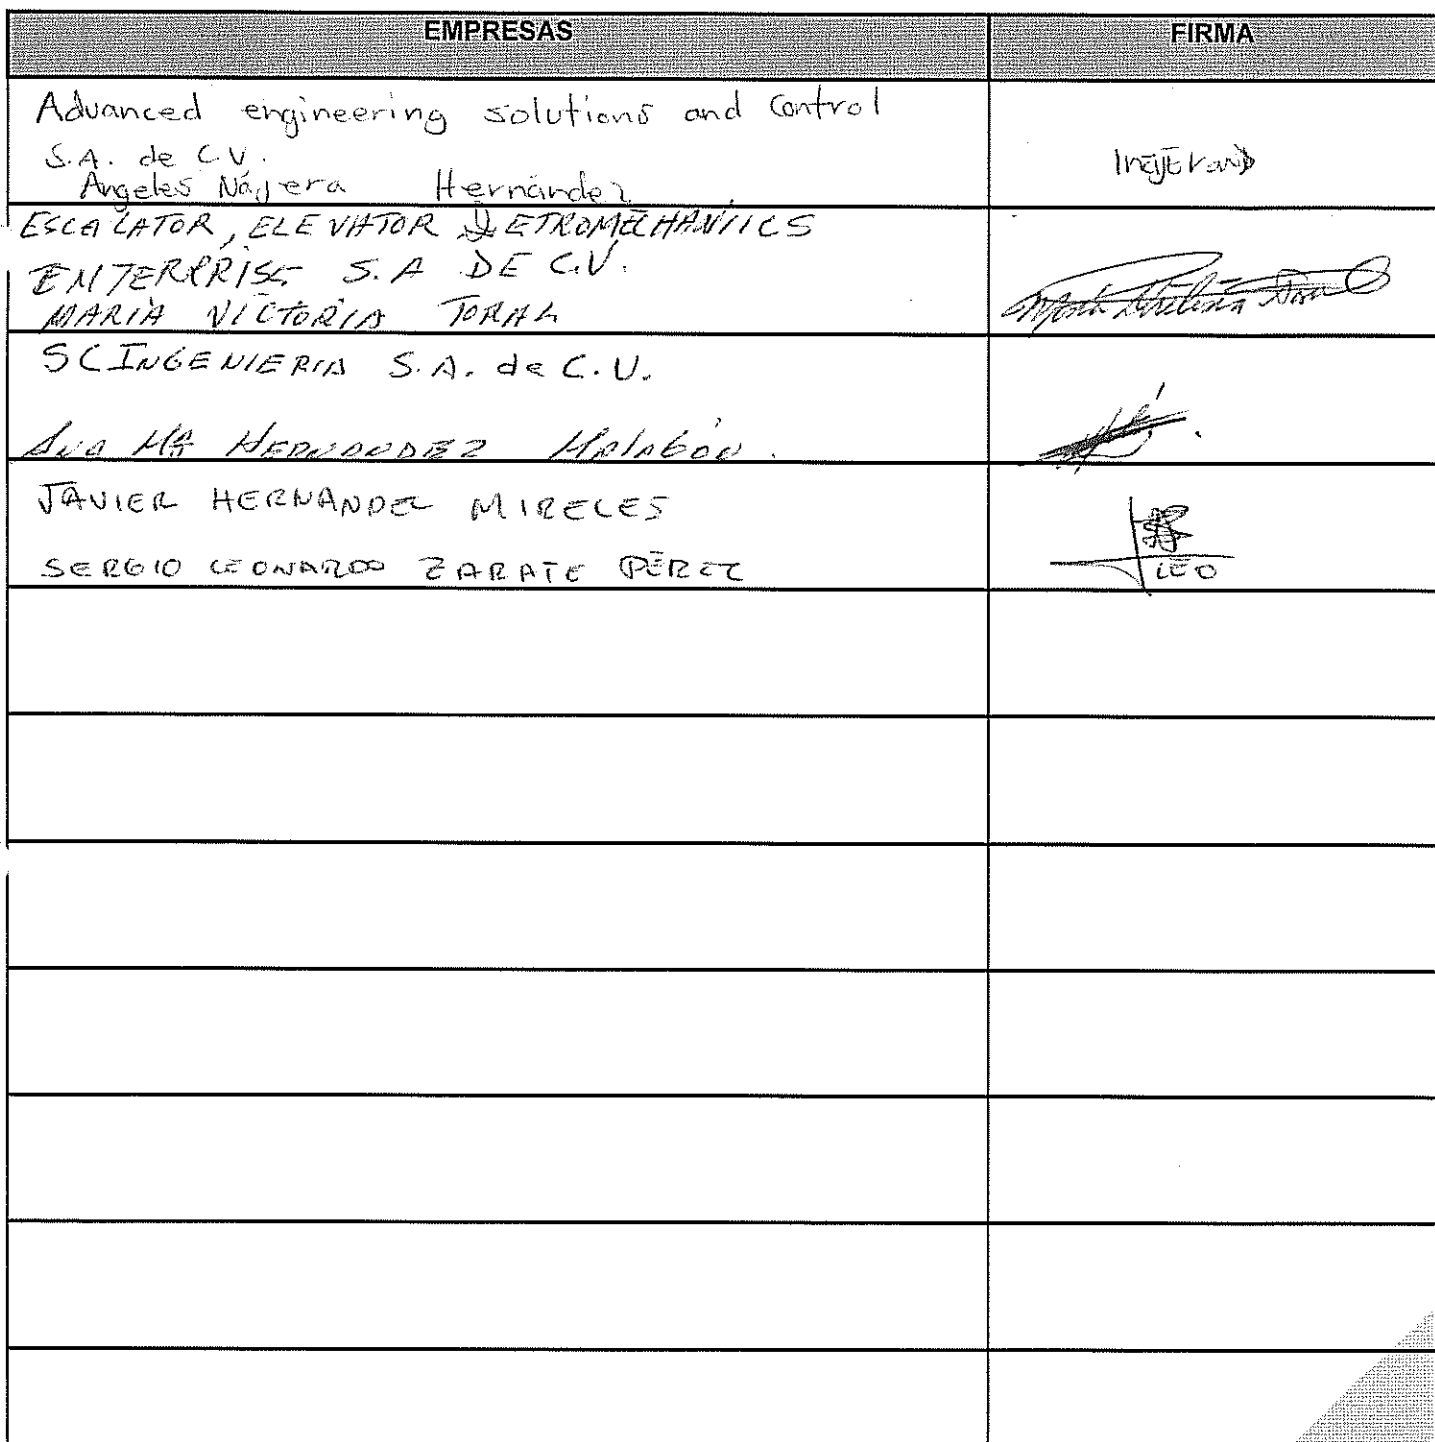 EMPRESAS FIRMA
Advanced engineering solutions and Control
S.A. de C.V.
Angeles Nájera Hernández
ESCALATOR, ELEVATOR
ENTERPRISE S.A DE C.V.
MARIA VICTORIA TORAL
SCINGENIERIA S.A. de C.V.
Ana Mª HERNANDEZ Malabón.
JAVIER HERNANDEZ MIRELES
SERGIO LEONARDO ZARATE PÉREZ
LEO